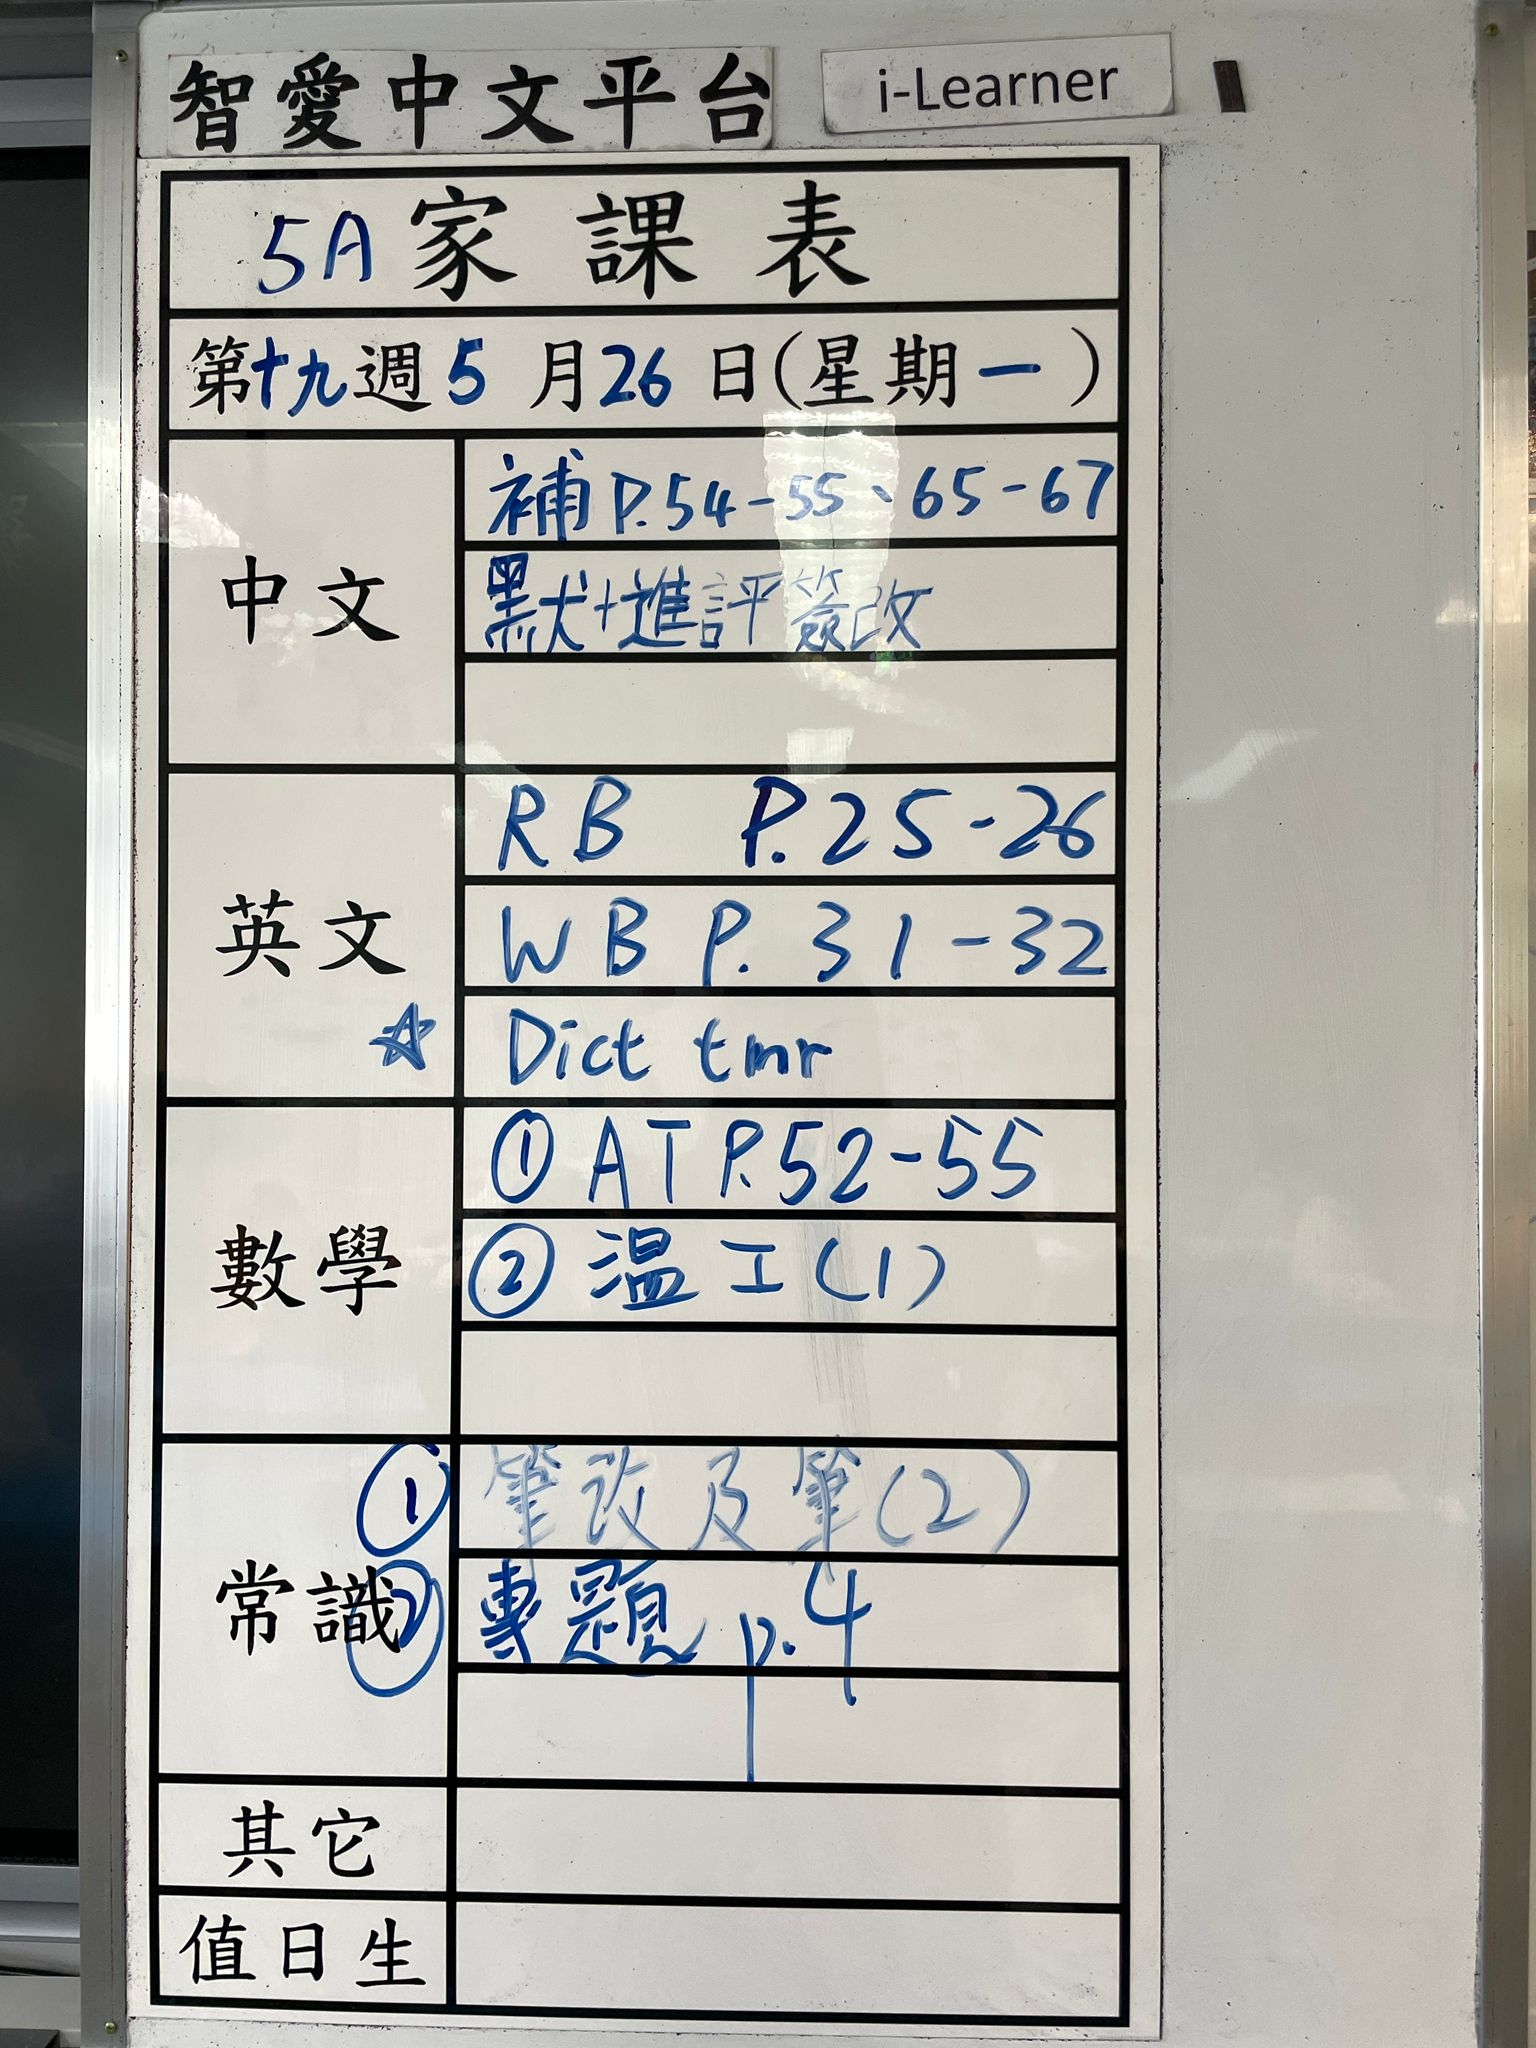 智愛中文平台 i-Learner
5A家課表
第十九週5月26日(星期一)
中文
補P.54-55、65-67
默+進評簽改
英文
RB P.25-26
WB P.31-32
☆ Dict tmr
數學
①AT P.52-55
②温工(1)
常識
①筆改及筆(2)
②專題 p.4
其它
值日生